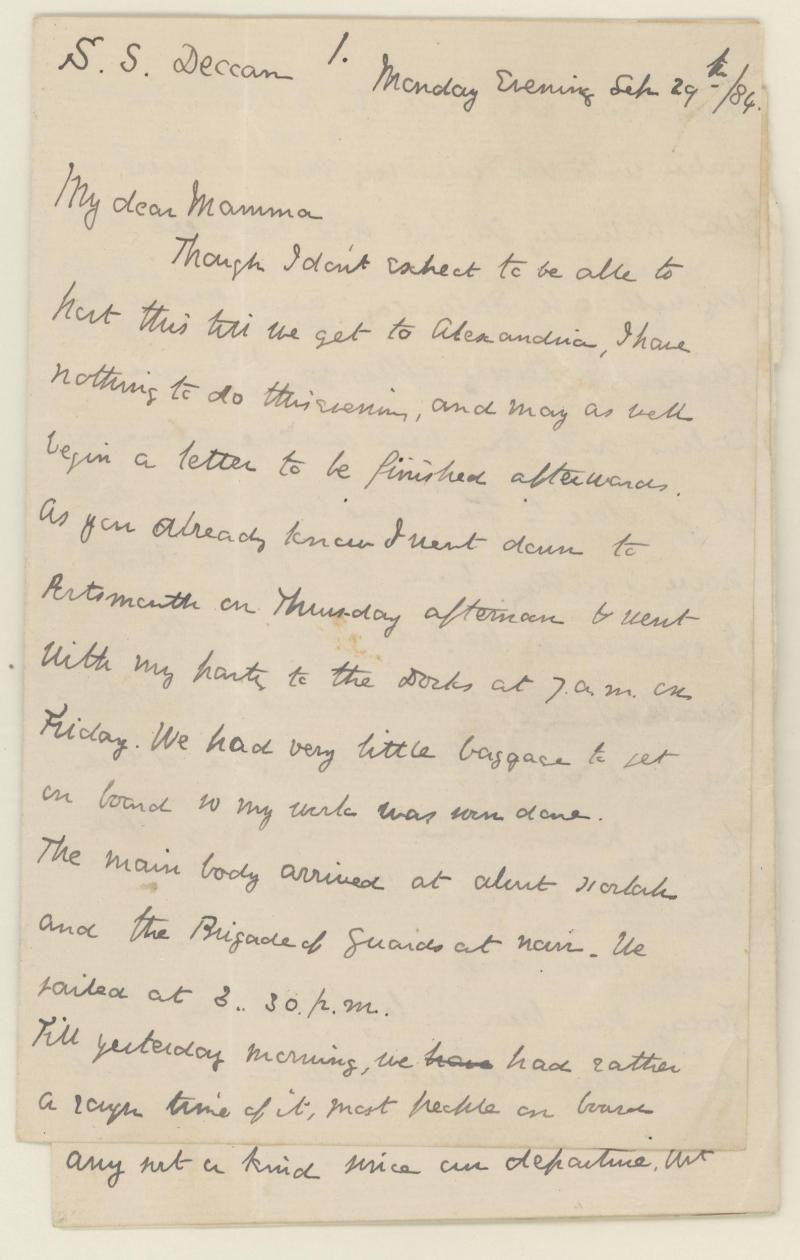 S. S. Deccan 1.
Monday Evening Sep 29th/84.
My dear Mamma
Though I don't expect to be able to
post this till we get to Alexandria, I have
nothing to do this evening, and may as well
begin a letter to be finished afterwards.
As you already know I went down to
Portsmouth on Thursday afternoon & went
with my party to the Docks at 7.a.m. on
Friday. We had very little baggage to get
on board so my work was soon done.
The main body arrived at about 11 o'clock
and the Brigade of Guards at noon. We
sailed at 3..30.p.m.
Till yesterday morning, we have had rather
a rough time of it, most people on board
any sort or kind since our departure, but